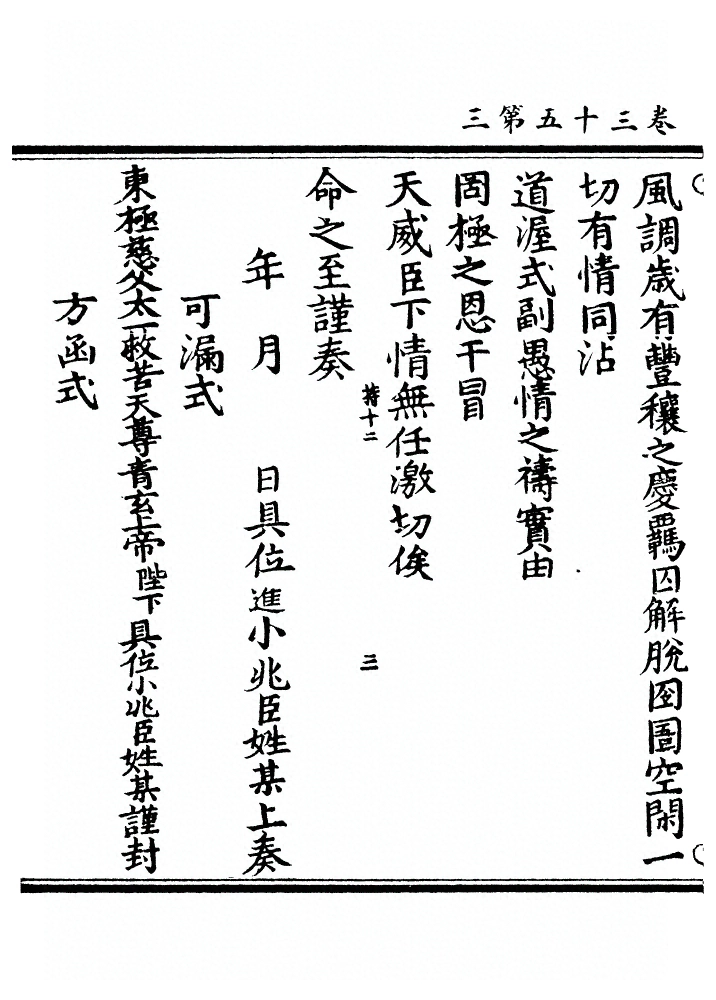 卷三十五第三
風調歲有豐穰之慶羈囚解脫囹圄空閑一
切有情同沾
道渥式副愚情之禱實由
罔極之恩干冒
天威臣下情無任激切俟
持十二 三
命之至謹奏
年 月 日具位進小兆臣姓某上奏
可漏式
東極慈父太一救苦天尊青玄上帝陛下具位小兆臣姓某謹封
方函式